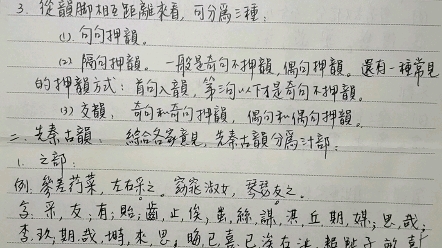 3. 從韻脚相互距離來看，可分爲三種：
(1). 句句押韻。
(2) 隔句押韻。 一般是奇句不押韻，偶句押韻。還有一種常見
的押韻方式：首句入韻，第三句以下才是奇句不押韻。
(3) 交韻， 奇句和奇句押韻， 偶句和偶句押韻。
二. 先秦古韻， 綜合各家意見，先秦古韻分爲卅部：
1. 之部：
例. 參差荇菜，左右采之。窈窕淑女，琴瑟友之。
采，友；有；貽；齒，止，俟；蚩，絲，謀，淇，丘，期，媒；思，哉；
李，玖，期，哉，塒，來，思，晦，已，喜；已，涘，在，沚